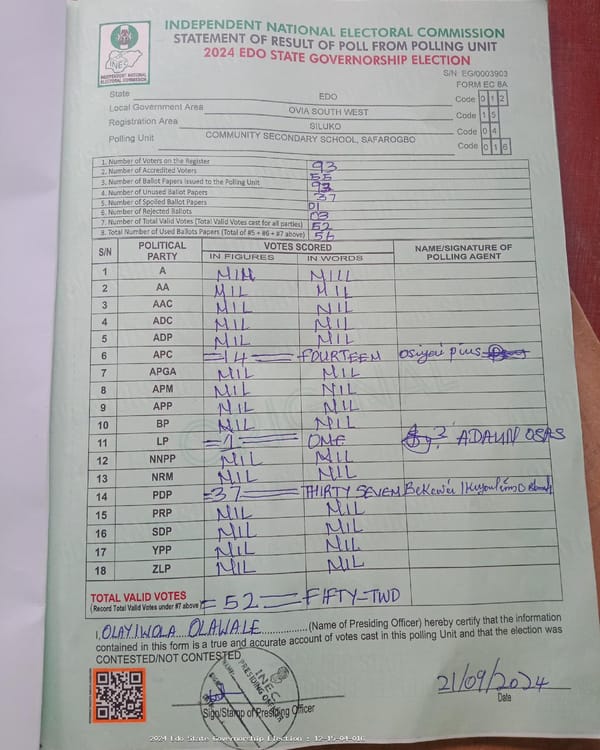 INDEPENDENT NATIONAL ELECTORAL COMMISSION
STATEMENT OF RESULT OF POLL FROM POLLING UNIT
2024 EDO STATE GOVERNORSHIP ELECTION
INEC
INDEPENDENT NATIONAL
ELECTORAL COMMISSION
S/N EG/0003903
FORM EC 8A
State EDO Code 0 1 2
Local Government Area OVIA SOUTH WEST Code 1 5
Registration Area SILUKO Code 0 4
Polling Unit COMMUNITY SECONDARY SCHOOL, SAFAROGBO Code 0 1 6
1. Number of Voters on the Register 93
2. Number of Accredited Voters 55
3. Number of Ballot Papers Issued to the Polling Unit 93
4. Number of Unused Ballot Papers 37
5. Number of Spoiled Ballot Papers 01
6. Number of Rejected Ballots 03
7. Number of Total Valid Votes (Total Valid Votes cast for all parties) 52
8. Total Number of Used Ballots Papers (Total of #5 + #6 + #7 above) 56
S/N POLITICAL PARTY VOTES SCORED NAME/SIGNATURE OF POLLING AGENT
IN FIGURES IN WORDS
1 A NIL NILL
2 AA NIL NIL
3 AAC NIL NIL
4 ADC NIL NIL
5 ADP NIL NIL
6 APC =14= FOURTEEN Osiyei pius
7 APGA NIL NIL
8 APM NIL NIL
9 APP NIL NIL
10 BP NIL NIL
11 LP =1= ONE OSAS
12 NNPP NIL NIL
13 NRM NIL NIL
14 PDP =37= THIRTY SEVEN
15 PRP NIL NIL
16 SDP NIL NIL
17 YPP NIL NIL
18 ZLP NIL NIL
TOTAL VALID VOTES
(Record Total Valid Votes under #7 above) =52= FIFTY-TWO
I, OLAYIWOLA OLAWALE (Name of Presiding Officer) hereby certify that the information
contained in this form is a true and accurate account of votes cast in this polling Unit and that the election was
CONTESTED/NOT CONTESTED
INEC
PRESIDING OFFICER
21/09/2024
Sign/Stamp of Presiding Officer Date
2024 Edo State Governorship Election : 12-15-04-016